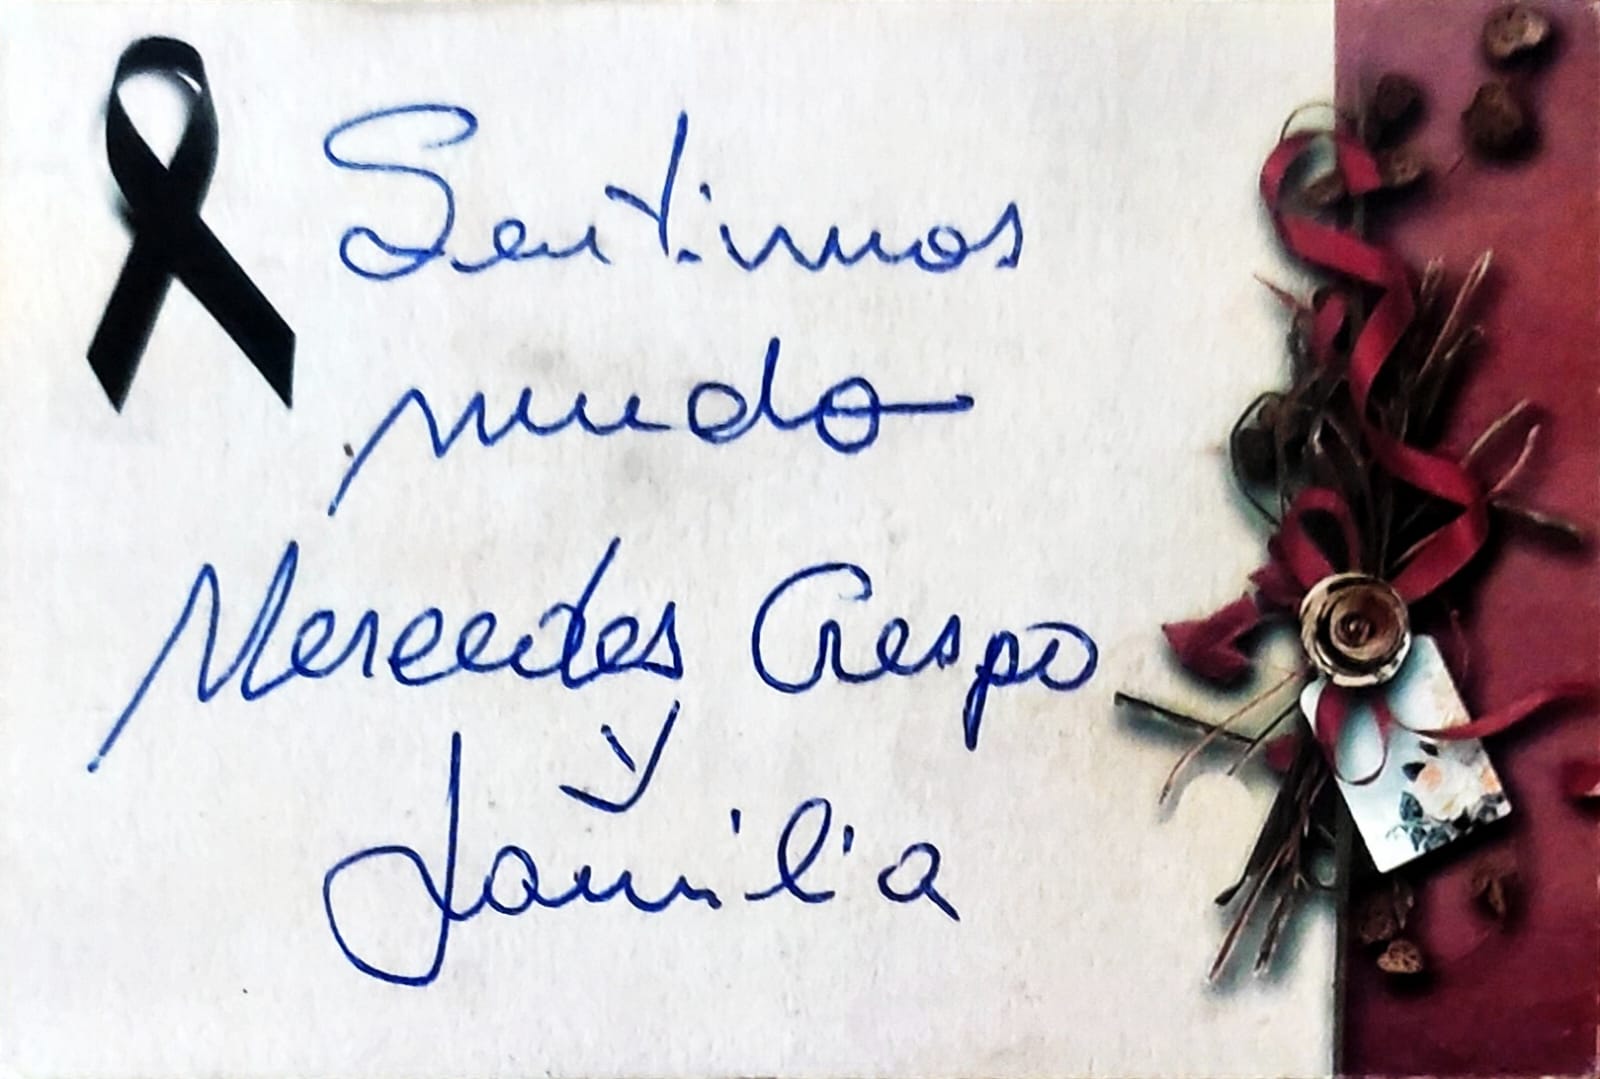 Sentimos
mudo
Mercedes Crespo
y
familia